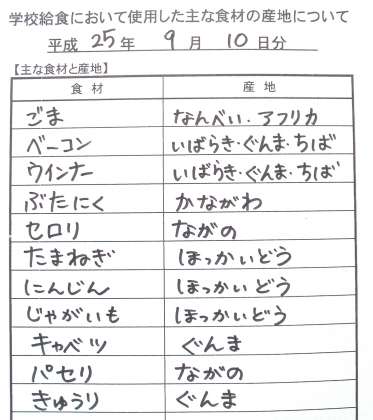 学校給食において使用した主な食材の産地について
平成 25 年 9 月 10 日分
【主な食材と産地】
食材 産地
ごま なんべい・アフリカ
ベーコン いばらき・ぐんま・ちば
ウインナー いばらき・ぐんま・ちば
ぶたにく かながわ
セロリ ながの
たまねぎ ほっかいどう
にんじん ほっかいどう
じゃがいも ほっかいどう
キャベツ ぐんま
パセリ ながの
きゅうり ぐんま